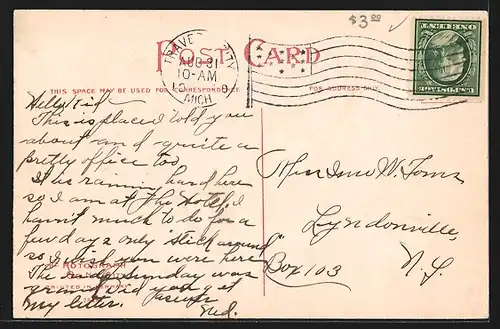 $3.00
POST CARD
TRAVERSE CITY
AUG 31
10-AM
MICH
ONE CENT
U.S. POSTAGE
THIS SPACE MAY BE USED FOR CORRESPONDENCE
FOR ADDRESS ONLY
Hello Kid -
This is place I told you
about and quite a
pretty office too
It is raining hard here
so I am at The Hotel. I
havn't much to do for a
few days only "stick around"
so wish you were here
The Sunday was
did you get
my letter.
Ned.
Miss W.
Lyndonville,
Box 103
N.Y.